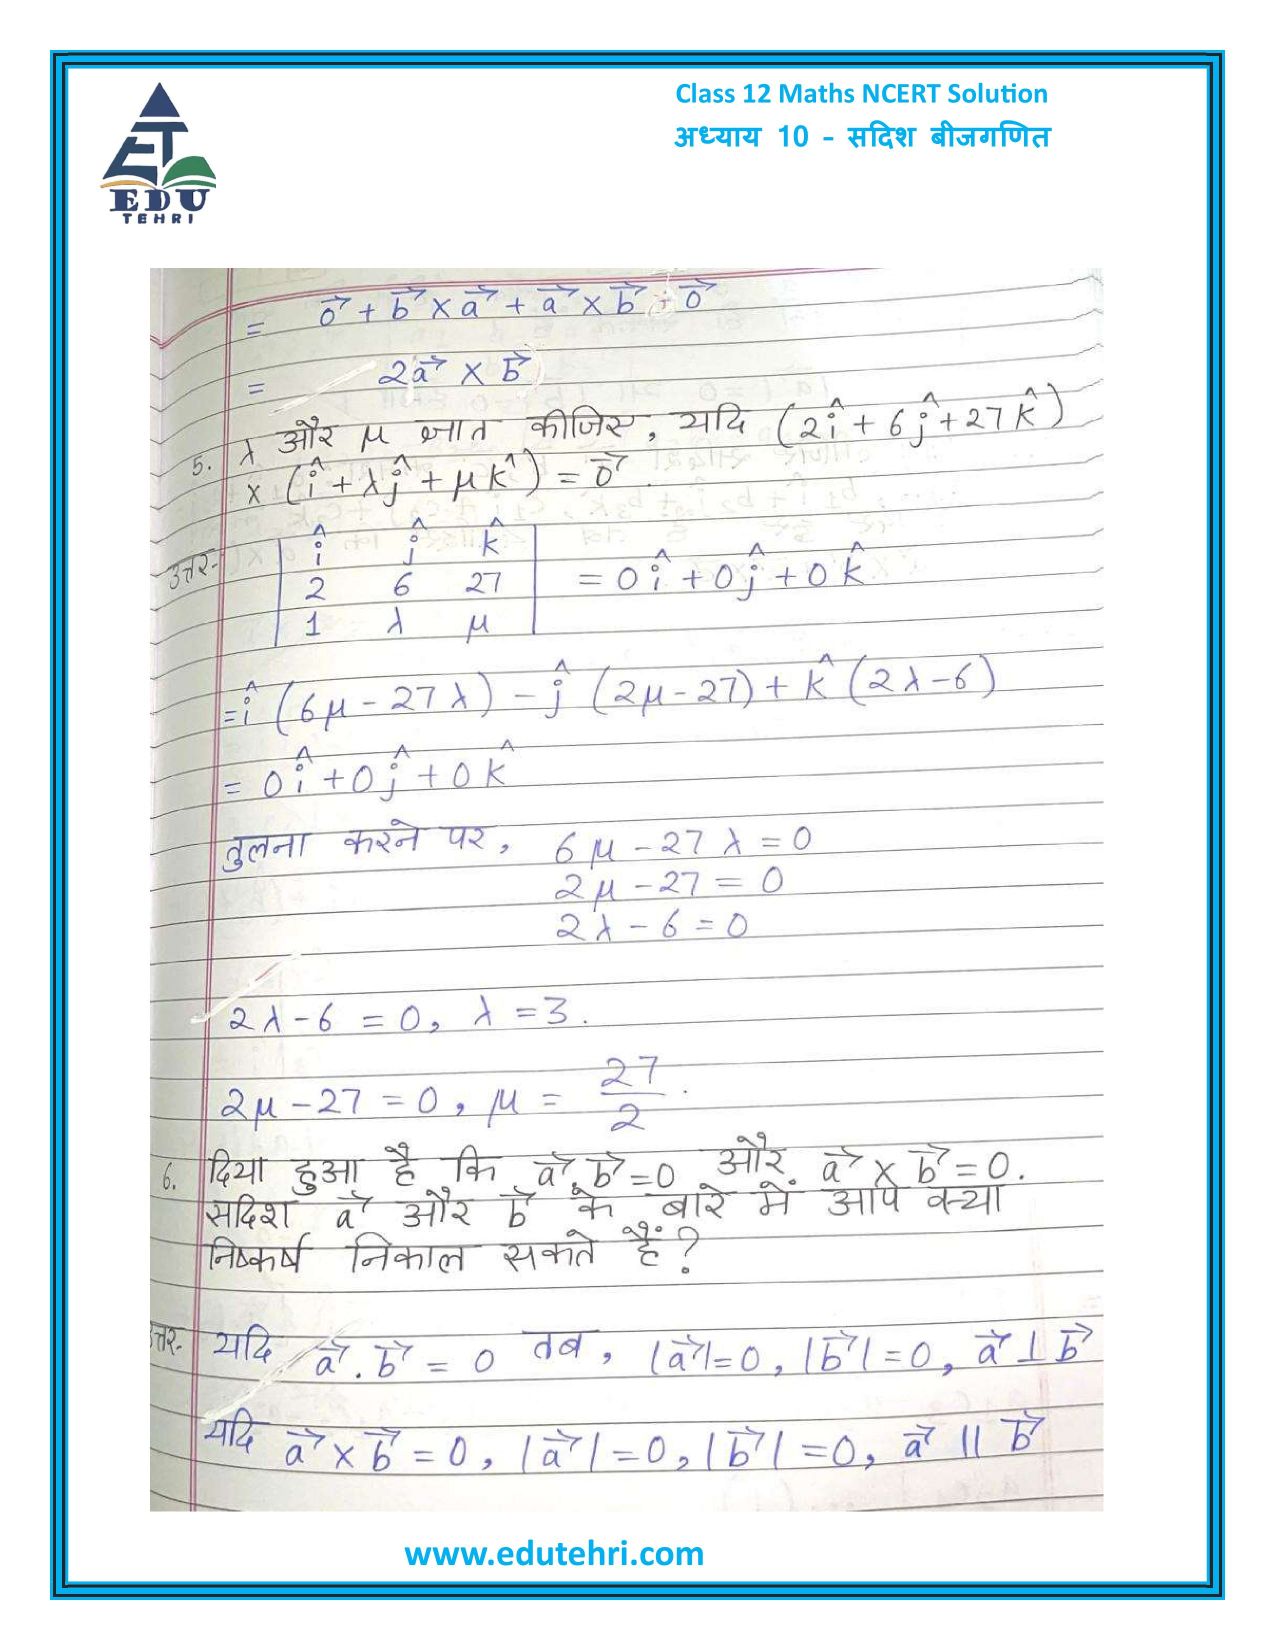 Class 12 Maths NCERT Solution
अध्याय 10 - सदिश बीजगणित
EDU
TEHRI
= o⃗ + b⃗ × a⃗ + a⃗ × b⃗ + o⃗
= 2a⃗ × b⃗
5. λ और μ ज्ञात कीजिए, यदि (2î + 6ĵ + 27k̂)
× (î + λĵ + μk̂) = o⃗.
उत्तर- | î ĵ k̂ |
| 2 6 27 | = 0î + 0ĵ + 0k̂
| 1 λ μ |
= î (6μ - 27λ) - ĵ (2μ - 27) + k̂ (2λ - 6)
= 0î + 0ĵ + 0k̂
तुलना करने पर, 6μ - 27λ = 0
2μ - 27 = 0
2λ - 6 = 0
2λ - 6 = 0, λ = 3.
2μ - 27 = 0, μ = 27/2.
6. दिया हुआ है कि a⃗.b⃗ = 0 और a⃗ × b⃗ = 0.
सदिश a⃗ और b⃗ के बारे में आप क्या
निष्कर्ष निकाल सकते हैं?
त्तर- यदि a⃗.b⃗ = 0 तब, |a⃗| = 0, |b⃗| = 0, a⃗ ⊥ b⃗
यदि a⃗ × b⃗ = 0, |a⃗| = 0, |b⃗| = 0, a⃗ || b⃗
www.edutehri.com